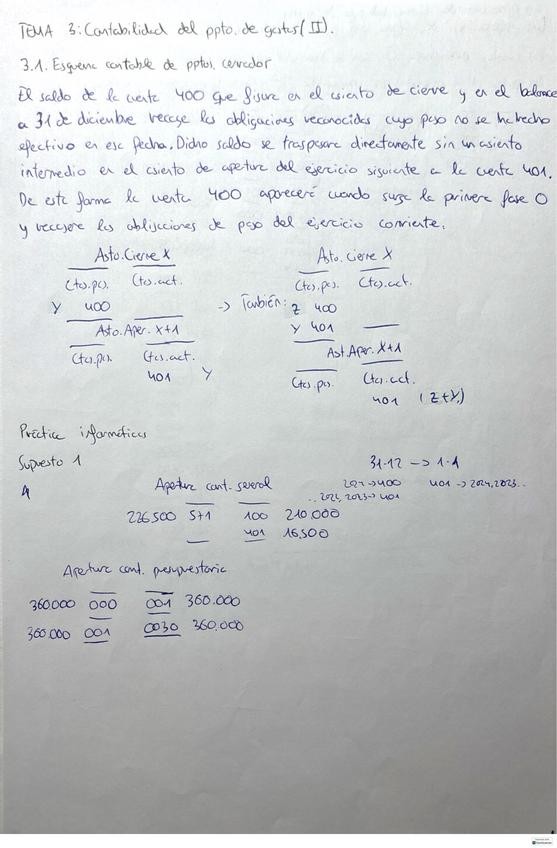 TEMA 3: Contabilidad del ppto. de gastos (II).
3.1. Esquema contable de pptos. cerrados
El saldo de la cuenta 400 que figura en el asiento de cierre y en el balance
a 31 de diciembre recoge las obligaciones reconocidas cuyo pago no se ha hecho
efectivo en esa fecha. Dicho saldo se traspasará directamente sin un asiento
intermedio en el asiento de apertura del ejercicio siguiente a la cuenta 401.
De esta forma la cuenta 400 aparecerá cuando surja la primera fase O
y recogerá las obligaciones de pago del ejercicio corriente.
Asto. Cierre X
Asto. Cierre X
Ctas. pas. Ctas. act.
Ctas. pas. Ctas. act.
Y 400
-> También: Z 400
Y 401
Asto. Aper. X+1
Ast. Aper. X+1
Ctas. pas. Ctas. act.
401 Y
Ctas. pas. Ctas. act.
401 (Z+Y)
Práctica informática
Supuesto 1
31-12 -> 1-1
4 Apertura cont. general
->400 401 -> 2024, 2023..
.. 2022, 2023-> 401
226.500 571 100 210.000
401 16.500
Apertura cont. presupuestaria
360.000 000 001 360.000
360.000 001 0030 360.000